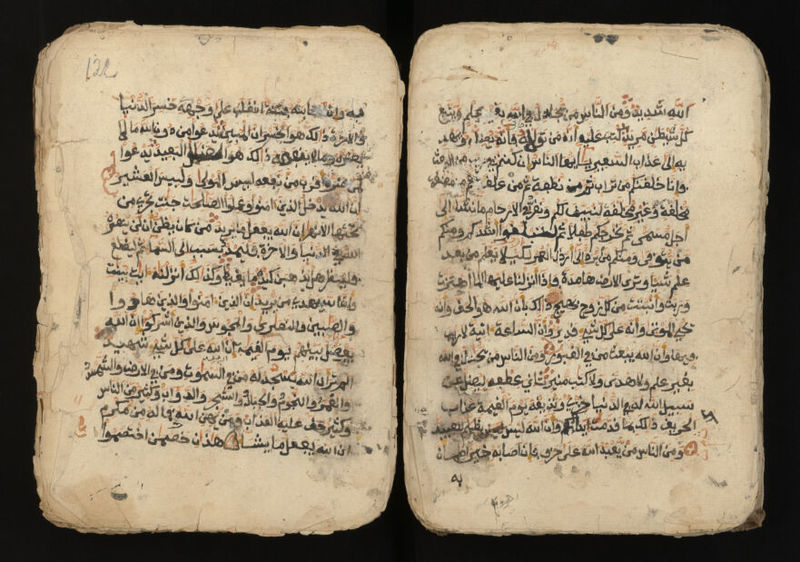 الله شديد ومن الناس من يجادل في الله بغير علم ويتبع
كل شيطن مريد كتب عليه انه من تولاه فانه يضله ويهد
يه الى عذاب السعير يايها الناس ان كنتم في ريب من البعث
فانا خلقنكم من تراب ثم من نطفة ثم من علقة ثم من مضغة
مخلقة وغير مخلقة لنبين لكم ونقر في الارحام ما نشاء الى
اجل مسمى ثم نخرجكم طفلا ثم لتبلغوا اشدكم ومنكم
من يتوفى ومنكم من يرد الى ارذل العمر لكيلا يعلم من بعد
علم شيا وترى الارض هامدة فاذا انزلنا عليها الما اهتزت
وربت وانبتت من كل زوج بهيج ذلك بان الله هو الحق وانه
يحي الموتى وانه على كل شي قدير وان الساعة اتية لا ريب
فيها وان الله يبعث من في القبور ومن الناس من يجادل في الله
بغير علم ولا هدى ولا كتب منير ثاني عطفه ليضل عن
سبيل الله له في الدنيا خزي ونذيقه يوم القيمة عذاب
الحريق ذلك بما قدمت يداك وان الله ليس بظلم للعبيد
ومن الناس من يعبد الله على حرف فان اصابه خير اطمان
به
122
به وان اصابته فتنة انقلب على وجهه خسر الدنيا
والاخرة ذلك هو الخسران المبين يدعوا من دون الله ما لا
يضره وما لا ينفعه ذلك هو الضلل البعيد يدعوا
لمن ضره اقرب من نفعه لبيس المولى ولبيس العشير
ان الله يدخل الذين امنوا وعملوا الصلحت جنت تجري من
تحتها الانهر ان الله يفعل ما يريد من كان يظن ان لن ينصره
الله في الدنيا والاخرة فليمدد بسبب الى السما ثم ليقطع
فلينظر هل يذهبن كيده ما يغيظ وكذلك انزلنه ايت بينت
وان الله يهدي من يريد ان الذين امنوا والذين هادوا
والصبين والنصرى والمجوس والذين اشركوا ان الله
يفصل بينهم يوم القيمة ان الله على كل شي شهيد
الم تر ان الله يسجد له من في السموت ومن في الارض والشمس
والقمر والنجوم والجبال والشجر والدواب وكثير من الناس
وكثير حق عليه العذاب ومن يهن الله فما له من مكرم
ان الله يفعل ما يشا هذان خصمن اختصموا